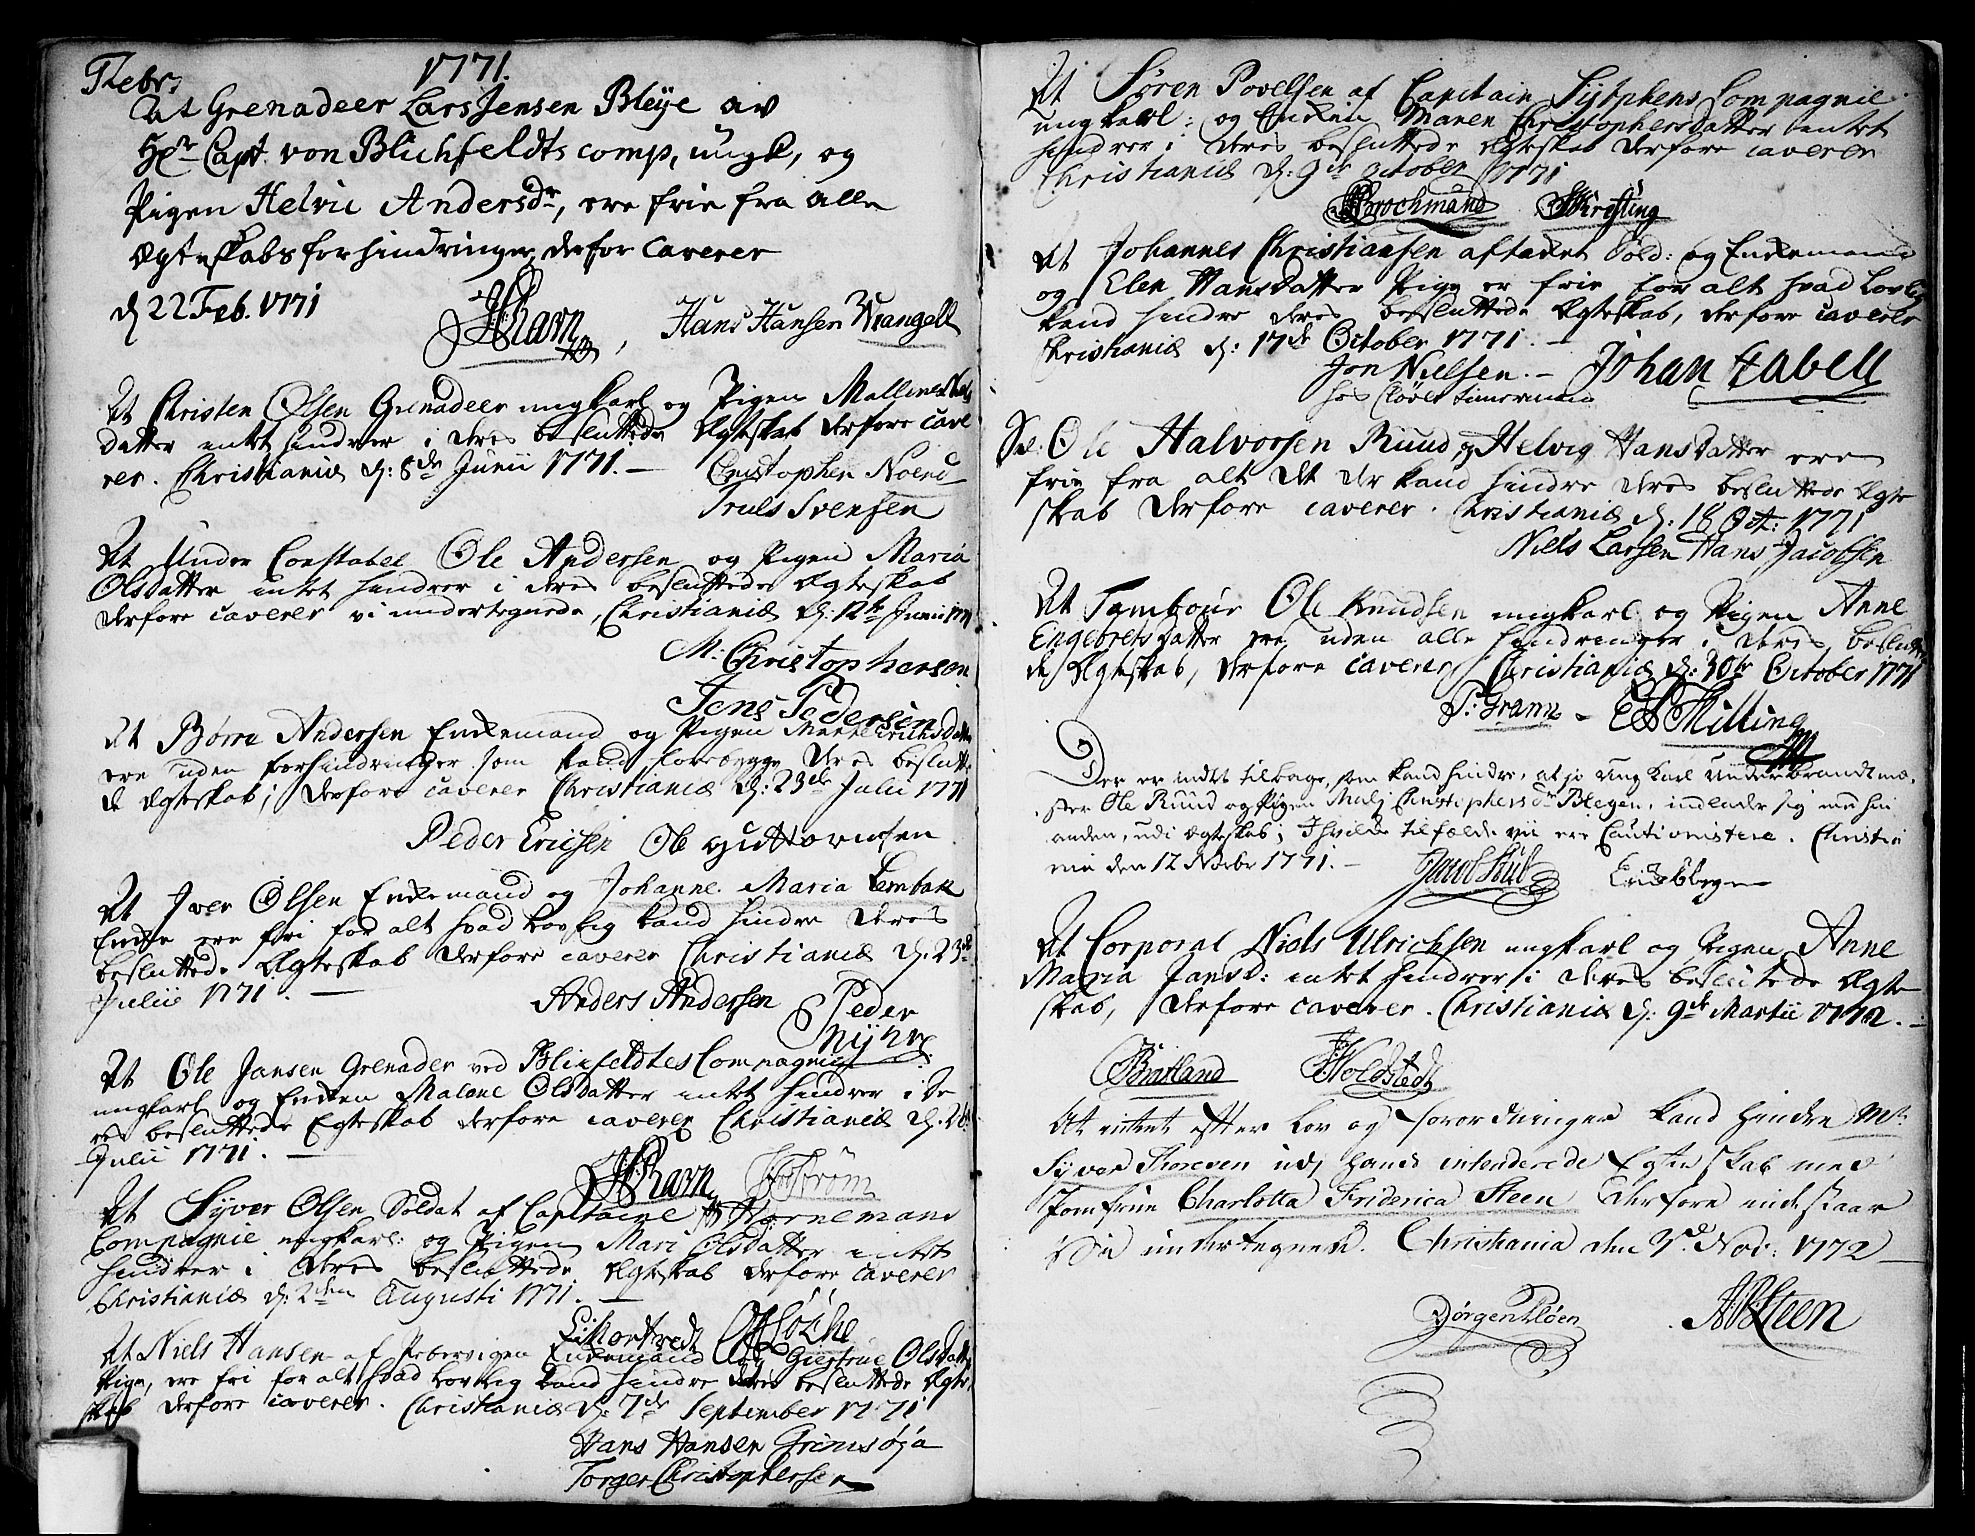 Febr. 1771.
At Grenadeer Lars Jensen Bleye av
Hr Capt. von Blichfeldts comp, ungk, og
Pigen Helvic Andersdr, ere frie fra alle
Ægteskabs forhindringer derfor Caverer
d 22 Feb. 1771
JRavn, Hans Hansen Wrangell
At Christen Olsen Grenadeer ungkarl og Pigen Malline
datter intet hindrer i deres besluttede Ægteskab derfore cave
rer. Christianiæ d: 8de Junii 1771. —
Christopher Noerd
Truls Svensen
At Under Constabel Ole Andersen og Pigen Maria
Olsdatter intet hindrer i deres besluttede Ægteskab
derfore caverer vi undertegnede, Christianiæ d: 12te Junii 1771
M: Christophersen
Jens Pedersen
At Børre Andersen Enkemand og Pigen Marte Erichsdatter
ere uden forhindringer som kand forebygge deres beslutte
de Ægteskab; derfore caverer Christianiæ d: 23de Julii 1771
Peder Ericsen Ole Guttormsen
At Iver Olsen Enkemand og Johanne Maria Lembak
Enke ere fri for alt hvad Lovlig kand hindre deres
besluttede Ægteskab derfore caverer Christianiæ d: 23de
Julii 1771. —
Anders Andersen Peder
Myhre
At Ole Jansen Grenader ved Blixfeldtes Compagnie
ungkarl og Enken Malene Olsdatter intet hindrer i de
res besluttede Egteskab derfore caverer Christianiæ d. 26
Julii 1771. —
JRavn Strøm
At Syver Olsen Soldat af Capitaine Hornemans
Compagnie ungkarl: og Pigen Mari Olsdatter intet
hindrer i deres besluttede Ægteskab derfore caverer
Christianiæ d: 2den Augusti 1771. —
At Niels Hansen af Pebervigen Enkemand og Giertrue Olsdatter
Pige, ere fri for alt hvad Lovlig kand hindre deres besluttede Ægte
skab derfore caverer. Christianiæ d: 7de September 1771
Hans Hansen Grimsøja
Torger Christophersen
At Søren Povelsen af Capitain Sylphens Compagnie
ungkarl: og Enken Maren Christophersdatter intet
hindrer i deres besluttede Ægteskab derfore caverer
Christianiæ d: 9de October 1771
Brochmand Kresting
At Johannes Christiansen aftaket Sold: og Enkemand
og Elen Hansdatter Pige er frie for alt hvad Lovlig
kand hindre deres besluttede Ægteskab, derfore caverer
Christianiæ d: 17de October 1771. —
Jon Nielsen. — Johan Zabell
hos Cløver timermand
At Ole Halvorsen Ruud og Helvig Hansdatter ere
frie fra alt det der kand hindre deres besluttede Ægte
skab derfore caverer. Christianiæ d: 18 Oct: 1771
Niels Larsen Hans Jacobsen
At Tambour Ole Knudsen ungkarl og Pigen Anne
Engebretsdatter ere uden alle hindringer i deres beslutte
de Ægteskab, derfore caverer Christianiæ d: 30te October 1771
P: Gram — Milling
Der er intet tilbage, som kand hindre, at jo ung karl Underbrandtme,
ster Ole Ruud og Pigen Malj Christophersdr Blegen, indlader sig med hin
anden, udi Ægteskab; I hvilde tilfælde vii ere Cautionistere. Christia
nia den 12 Novbr 1771. —
Jacob
At Corporal Niels Ulrichsen ungkarl og Pigen Anne
Maria Jansd: intet hindrer i deres beslutede Ægte
skab, derfore caverer. Christianiæ d: 9de Martii 1772. —
Bratland Holdstedt
At intet efter Lov og forordninger kand hindre Mr:
Syver Thoresen udj hans intenderede Egteskab med
Jomfrue Charlotta Friderica Steen derfore indestaar
Vi undertegnede. Christiania den 3d Nov: 1772 —
Jørgen Fløen Steen